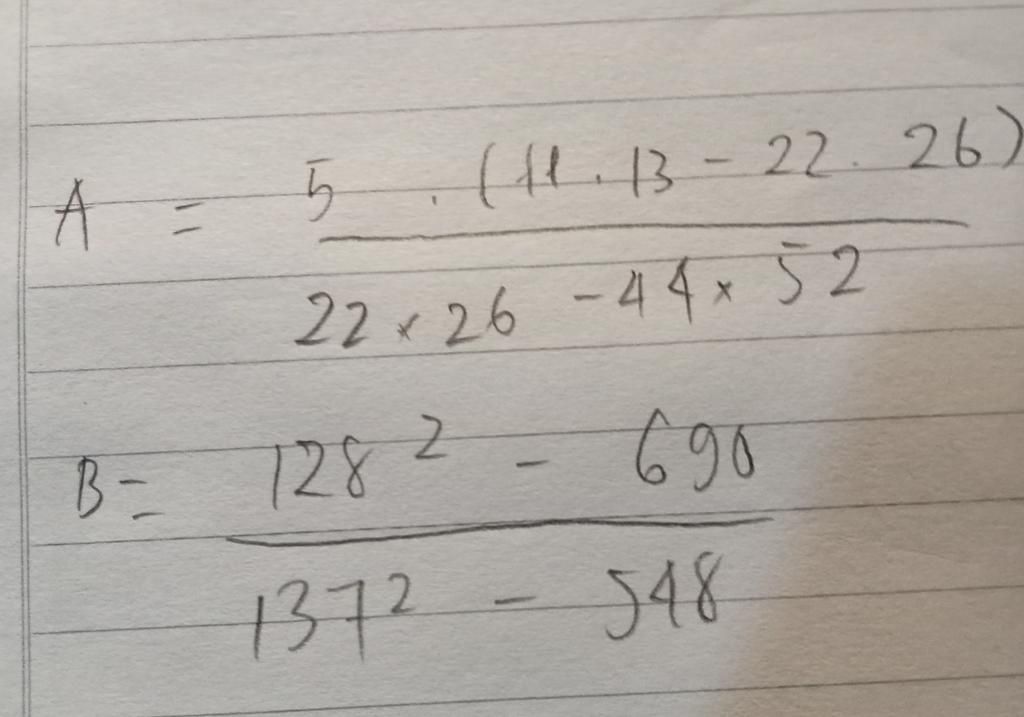 A = 5 . (11 . 13 - 22 . 26)
22 × 26 - 44 × 52
B = 128² - 690
137² - 548